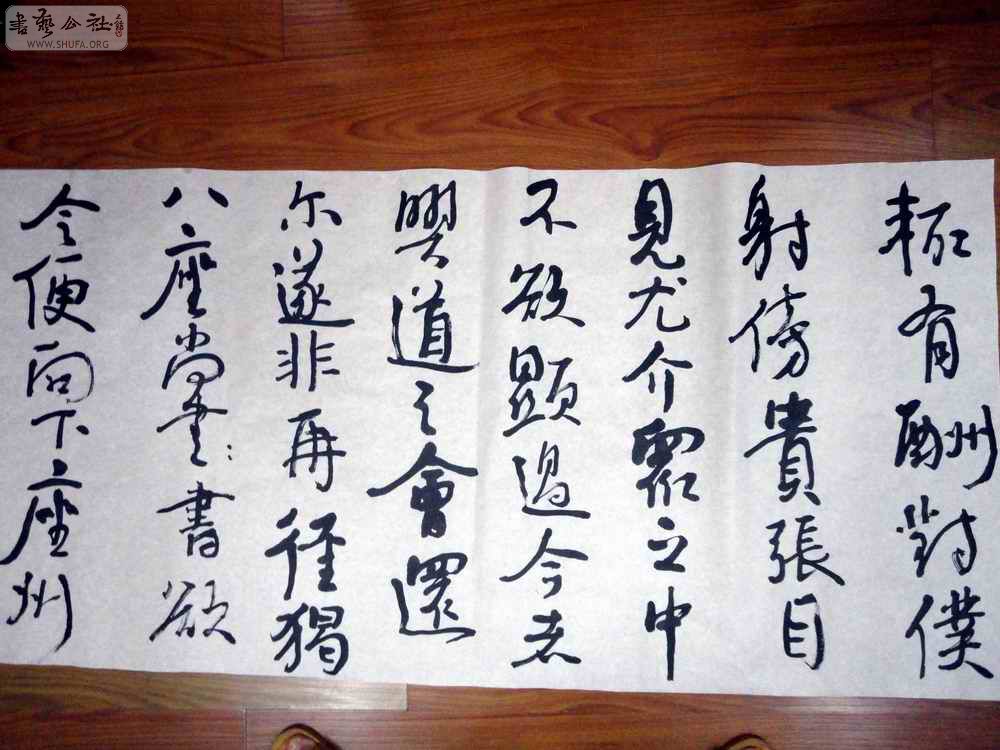 書藝公社
WWW.SHUFA.ORG
輒有酬對僕
射傍貴張目
見尤介眾之中
不欲顯過今者
興道之會還
尔遂非再徑猲
八座尚書書欲
令便向下座州